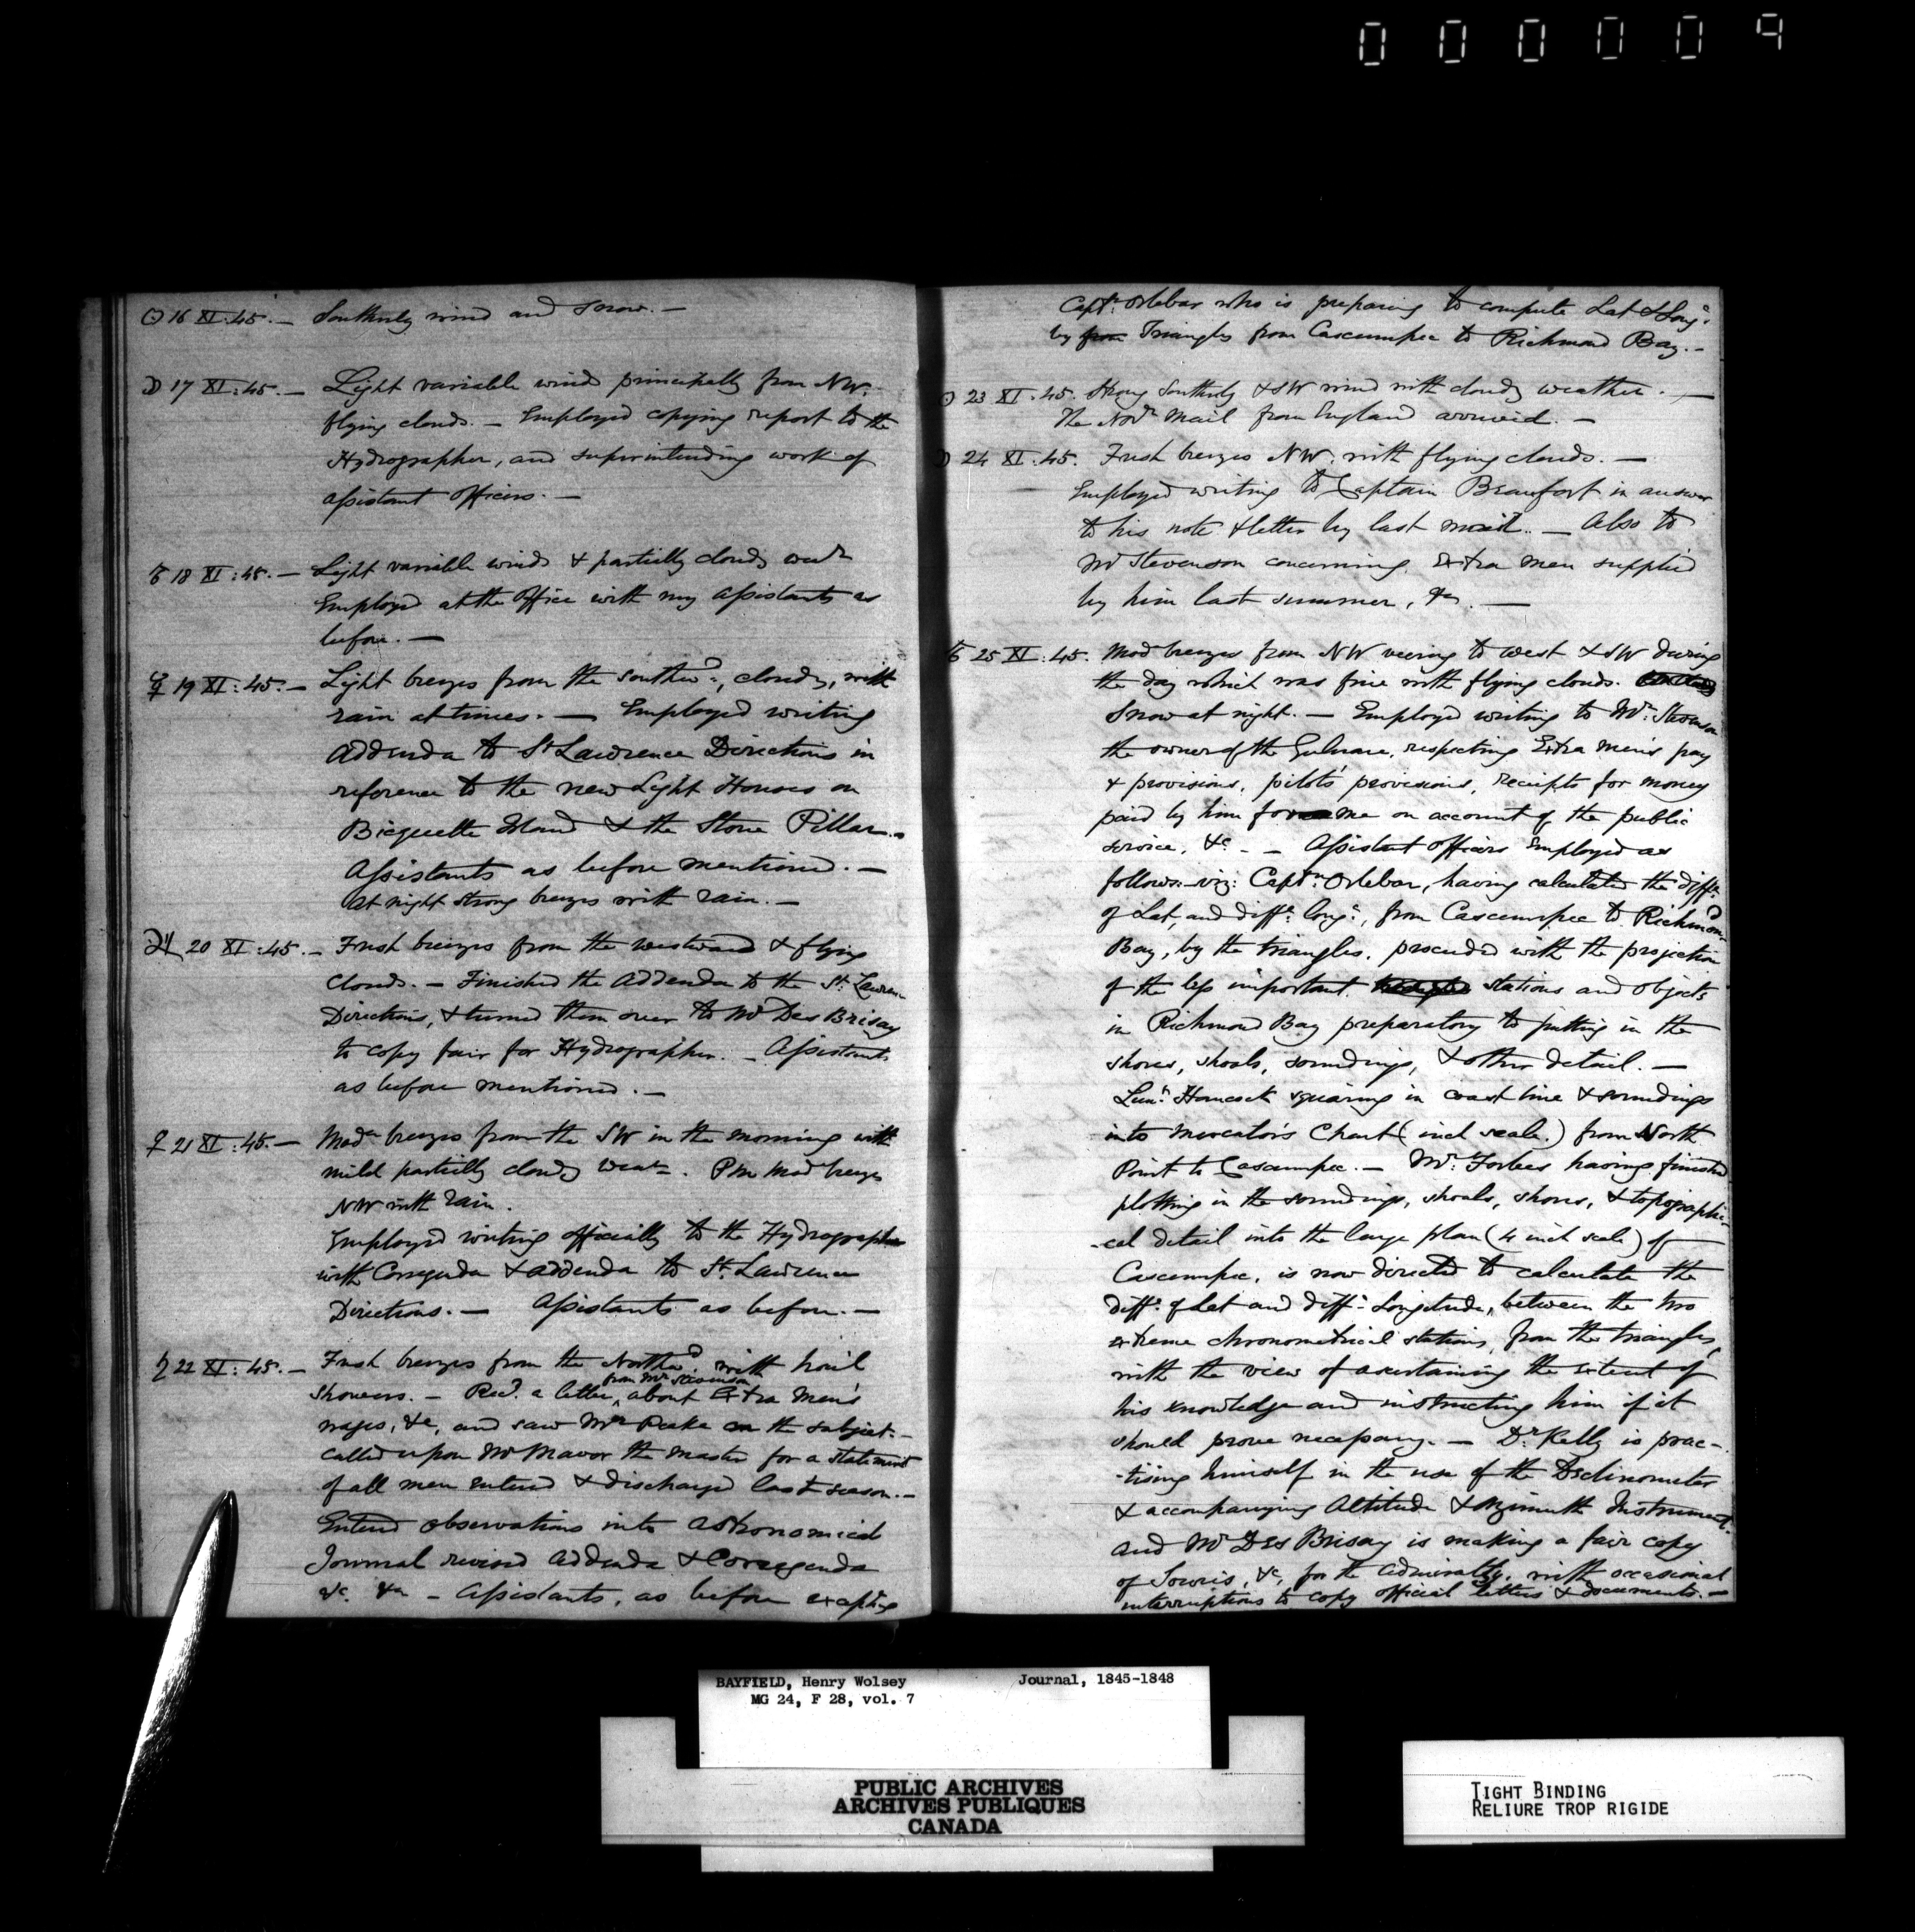 000009
☉ 16 XI:45.— Southerly wind and snow.—
☽ 17 XI:45.— Light variable winds principally from NW.
flying clouds.— Employed copying report to the
Hydrographer, and superintending work of
assistant officers.—
♂ 18 XI:45.— Light variable winds & partially cloudy weatr
Employed at the office with my assistants as
before.—
☿ 19 XI:45.— Light breezes from the southwd, cloudy, with
rain at times.— Employed writing
Addenda to St Lawrence Directions in
reference to the new Light Houses on
Bicquette Island & the Stone Pillar.
Assistants as before mentioned.—
at night strong breezes with rain.—
♃ 20 XI:45.— Fresh breezes from the westward & flying
clouds.— Finished the Addenda to the St Lawren-
Directions, & turned them over to Mr Des Brisay
to copy fair for Hydrographer.— Assistants
as before mentioned.—
♀ 21 XI:45.— Modr breezes from the SW in the morning with
mild partially cloudy weatr. Pm Mod breezes
NW with rain.
Employed writing officially to the Hydrographer
with Corregenda & addenda to St Lawrence
Directions.— Assistants as before.—
♄ 22 XI:45.— Fresh breezes from the Northwd. with hail
from Mr Stevenson
showers.— Recd. a letter ^ about Extra Men's
wages, &c, and saw Mr Peake on the subject.—
called upon Mr Mavor the Master for a statement
of all men entered & discharged last season.—
Entered observations into astronomical
Journal revised addenda & Corregenda
&c. &c — Assistants, as before excepting
Captn. Orlebar who is preparing to compute Lat & Long.
by from Triangles from Cascumpec to Richmond Bay.—
☉ 23 XI:45. Strong Southerly & SW wind with cloudy weather.—
The Novr Mail from England arrived.—
☽ 24 XI:45. Fresh breezes NW. with flying clouds.—
Employed writing to Captain Beaufort in answer
to his note & letter by last mail.— Also to
Mr Stevenson concerning Extra men supplied
by him last summer, &c.—
♂ 25 XI:45. Mod breezes from NW veering to west & SW during
the day which was fine with flying clouds.
Snow at night.— Employed writing to Mr. Stevenson
the owner of the Gulnare, respecting Extra men's pay
& provisions, pilots' provisions, receipts for money
paid by him for me on account of the public
service, &c.— Assistant officers employed as
follows:—viz: Captn: Orlebar, having calculated the diffe.
of Lat, and diffe. long:, from Cascumpec to Richmond
Bay, by the triangles, proceeded with the projection
of the less important stations and objects
in Richmond Bay preparatory to putting in the
shores, shoals, soundings, & other detail.—
Lieut. Hancock squaring in coast line & soundings
into Mercator's Chart (inch scale.) from North
Point to Cascumpec.— Mr. Forbes having finished
plotting in the soundings, shoals, shores, & topographi-
-cal detail into the large plan (4 inch scale) of
Cascumpec, is now directed to calculate the
diffe. of Lat and diffe. Longitude, between the two
extreme chronometrical stations, from the triangles,
with the view of ascertaining the extent of
his knowledge and instructing him if it
should prove necessary.— Dr. Kelly is prac-
-tising himself in the use of the Declinometer
& accompanying Altitude & Azimuth Instrument.
and Mr Des Brisay is making a fair copy
of Souris, &c, for the Admiralty, with occasional
interruptions to copy official letters & documents.—
BAYFIELD, Henry Wolsey Journal, 1845-1848
MG 24, F 28, vol. 7
PUBLIC ARCHIVES
ARCHIVES PUBLIQUES
CANADA
TIGHT BINDING
RELIURE TROP RIGIDE